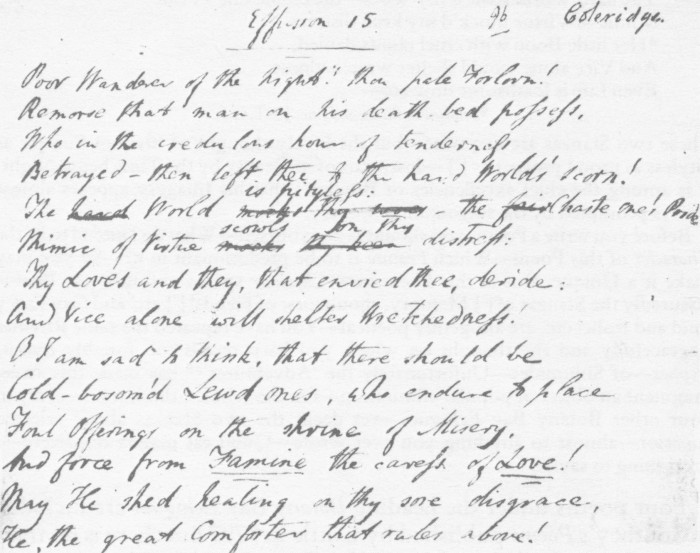 Effusion 15 Coleridge.
Poor Wanderer of the night! thou pale Forlorn!
Remorse that man on his death bed possess,
Who in the credulous hour of tenderness
Betrayed – then left thee to the hard World's scorn!
is pityless:
The hard World mocks thy woes – the fair Chaste one's Pride
scowls on thy
Mimic of Virtue mocks thy keen distress:
Thy Loves and they, that envied thee, deride!
And Vice alone will shelter Wretchedness.
O I am sad to think, that there should be
Cold-bosom'd Lewd ones, who endure to place
Foul Offerings on the shrine of Misery,
And force from Famine the caress of Love!
May He shed healing on thy sore disgrace,
He, the great Comforter that rules above!